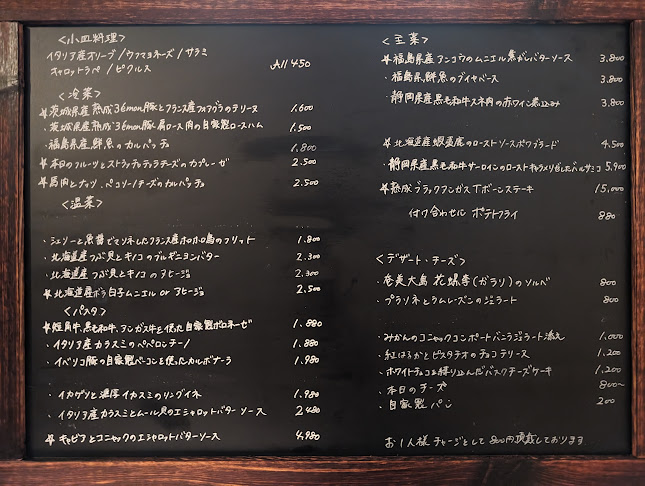 <小皿料理>
イタリア産オリーブ/ウフマヨネーズ/サラミ
キャロットラペ/ピクルス All 450
<冷菜>
☆茨城県産熟成36mon豚とフランス産フォアグラのテリーヌ 1.600
・茨城県産熟成36mon豚肩ロース肉の自家製ロースハム 1.500
・福島県産鮮魚のカルパッチョ 1.800
☆本日のフルーツとストラッチャテッラチーズのカプレーゼ 2.500
☆馬肉とナッツ、ペコリーノチーズのカルパッチョ 2.500
<温菜>
・シェリーと魚醤でマリネしたフランス産ホロホロ鳥のフリット 1.800
・北海道産つぶ貝とキノコのブルギニヨンバター 2.300
・北海道産つぶ貝とキノコのアヒージョ 2.300
☆北海道産タラ白子ムニエル or アヒージョ 2.500
<パスタ>
☆短角牛、黒毛和牛、アンガス牛を使った自家製ボロネーゼ 1.880
・イタリア産カラスミのペペロンチーノ 1.880
・イベリコ豚の自家製ベーコンを使ったカルボナーラ 1.980
・イカゲソと濃厚イカスミのリングイネ 1.980
・イタリア産カラスミとムール貝のエシャロットバターソース 2480
☆キャビアとコニャックのエシャロットバターソース 4.980
<主菜>
☆福島県産アンコウのムニエル焦がしバターソース 3.800
・福島県鮮魚のブイヤベース 3.800
・静岡県産黒毛和牛スネ肉の赤ワイン煮込み 3.800
☆北海道産蝦夷鹿のローストソースポワブラード 4.500
・静岡県産黒毛和牛サーロインのローストキャラメリゼしたバルサミコ 5.900
☆熟成ブラックアンガスTボーンステーキ 15.000
付け合わせに ポテトフライ 880
<デザート・チーズ>
・奄美大島 花螺李(ガラリ)のソルベ 800
・プラリネとラムレーズンのジェラート 800
・みかんのコニャックコンポートバニラジェラート添え 1.000
・紅はるかとピスタチオのチョコテリーヌ 1.200
・ホワイトチョコを練り込んだバスクチーズケーキ 1.200
・本日のチーズ 800~
・自家製パン 200
お1人様チャージとして800円頂戴しております